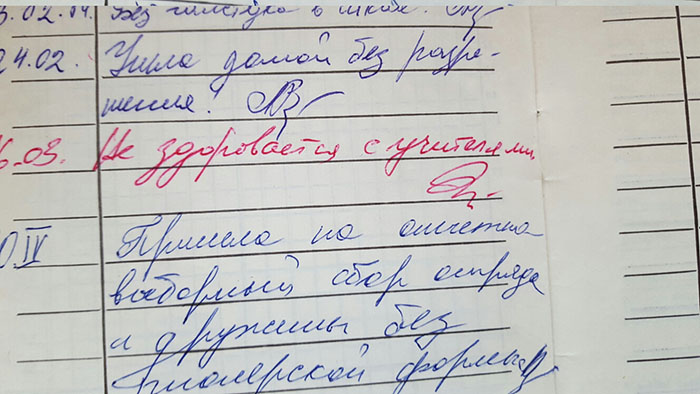 3.02.04. Без галстука в школе.
24.02. Ушла домой без разре-
шения!
6.03. Не здоровается с учителями
0.IV Пришла на отчетно-
выборный сбор отряда
и дружины без
пионерской формы